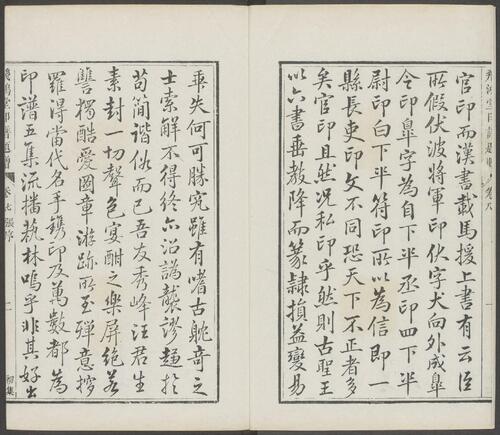 官印而漢書載馬援上書有云臣
所假伏波將軍印伏字犬向外成皐
令印皐字為自下半丞印四下半
尉印白下半符印所以為信即一
縣長吏印文不同恐天下不正者多
矣官印且然況私印乎然則古聖王
以六書垂教降而篆隸損益變易
乖失何可勝究雖有嗜古躭奇之
士索解不得終亦沿譌襲謬趨於
苟簡諧俗而已吾友秀峰汪君生
素封一切聲色宴酣之樂屏絕若
讐獨酷愛圖章游跡所至殫意搜
羅得當代名手鐫印及萬數都為
印譜五集流播埶林嗚乎非其好出
張序
初集